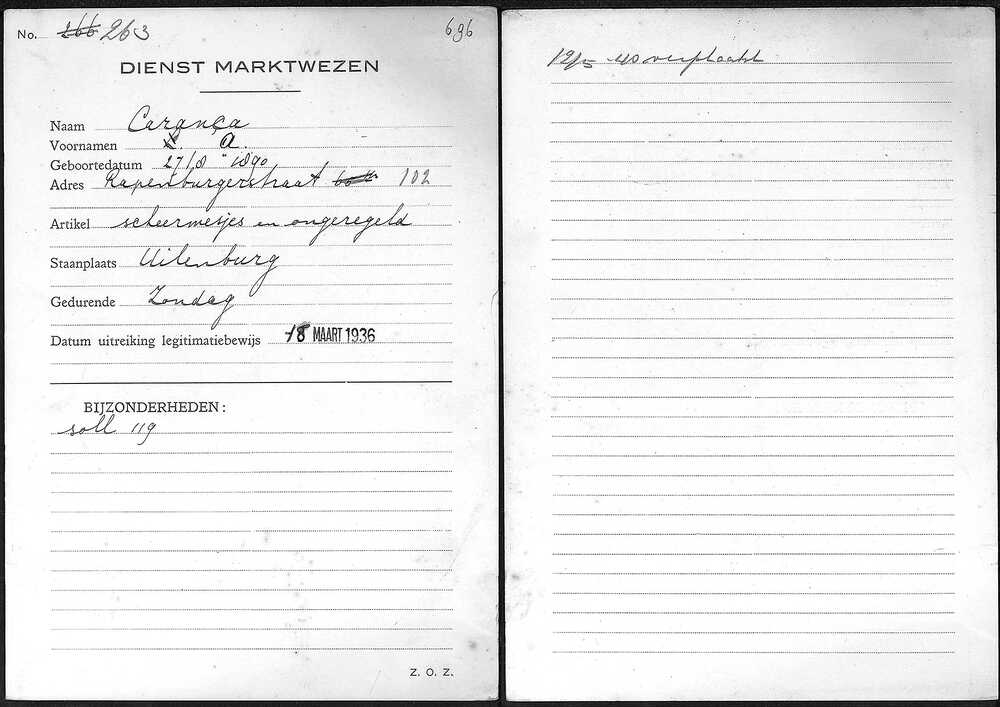 No. 266 263 696
DIENST MARKTWEZEN
Naam Carança
Voornamen A.
Geboortedatum 27/8 " 1890
Adres Rapenburgerstraat 102
Artikel scheermesjes en ongeregeld
Staanplaats Uilenburg
Gedurende Zondag
Datum uitreiking legitimatiebewijs 18 MAART 1936
BIJZONDERHEDEN:
soll 119
Z. O. Z.
12/5 40 verplaatst